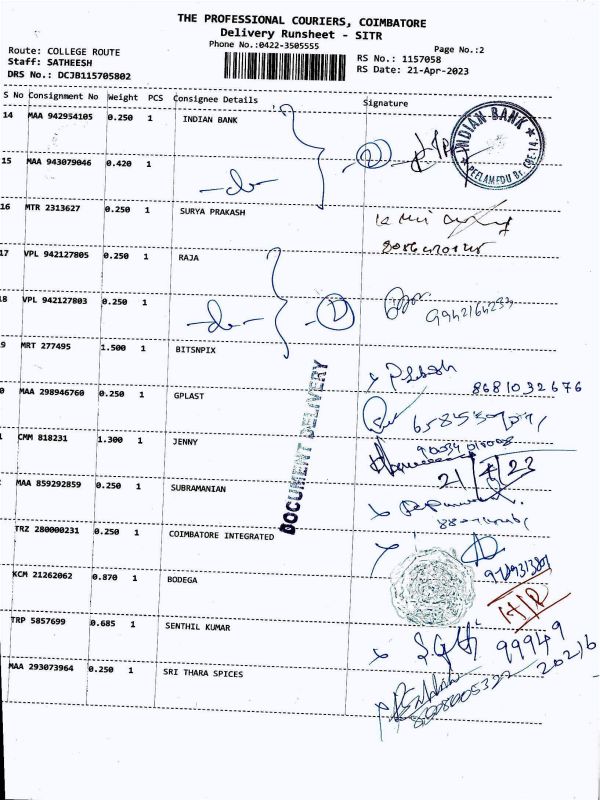 THE PROFESSIONAL COURIERS, COIMBATORE
Delivery Runsheet - SITR
Phone No.:0422-3505555
Page No.:2
Route: COLLEGE ROUTE
Staff: SATHEESH
DRS No.: DCJB115705802
RS No.: 1157058
RS Date: 21-Apr-2023
S No Consignment No Weight PCS Consignee Details Signature
14 MAA 942954105 0.250 1 INDIAN BANK
INDIAN BANK
PEELAMEDU Br. CBE-14.
15 MAA 943079046 0.420 1 -do-
16 MTR 2313627 0.250 1 SURYA PRAKASH
17 VPL 942127805 0.250 1 RAJA
8 VPL 942127803 0.250 1 -do-
9942164233
9 MRT 277495 1.500 1 BITSNPIX
8681032676
0 MAA 298946760 0.250 1 GPLAST
CMM 818231 1.300 1 JENNY
21/4/23
DOCUMENT DELIVERY
MAA 859292859 0.250 1 SUBRAMANIAN
TRZ 280000231 0.250 1 COIMBATORE INTEGRATED
KCM 21262062 0.870 1 BODEGA
TRP 5857699 0.685 1 SENTHIL KUMAR
99949
20216
MAA 293073964 0.250 1 SRI THARA SPICES